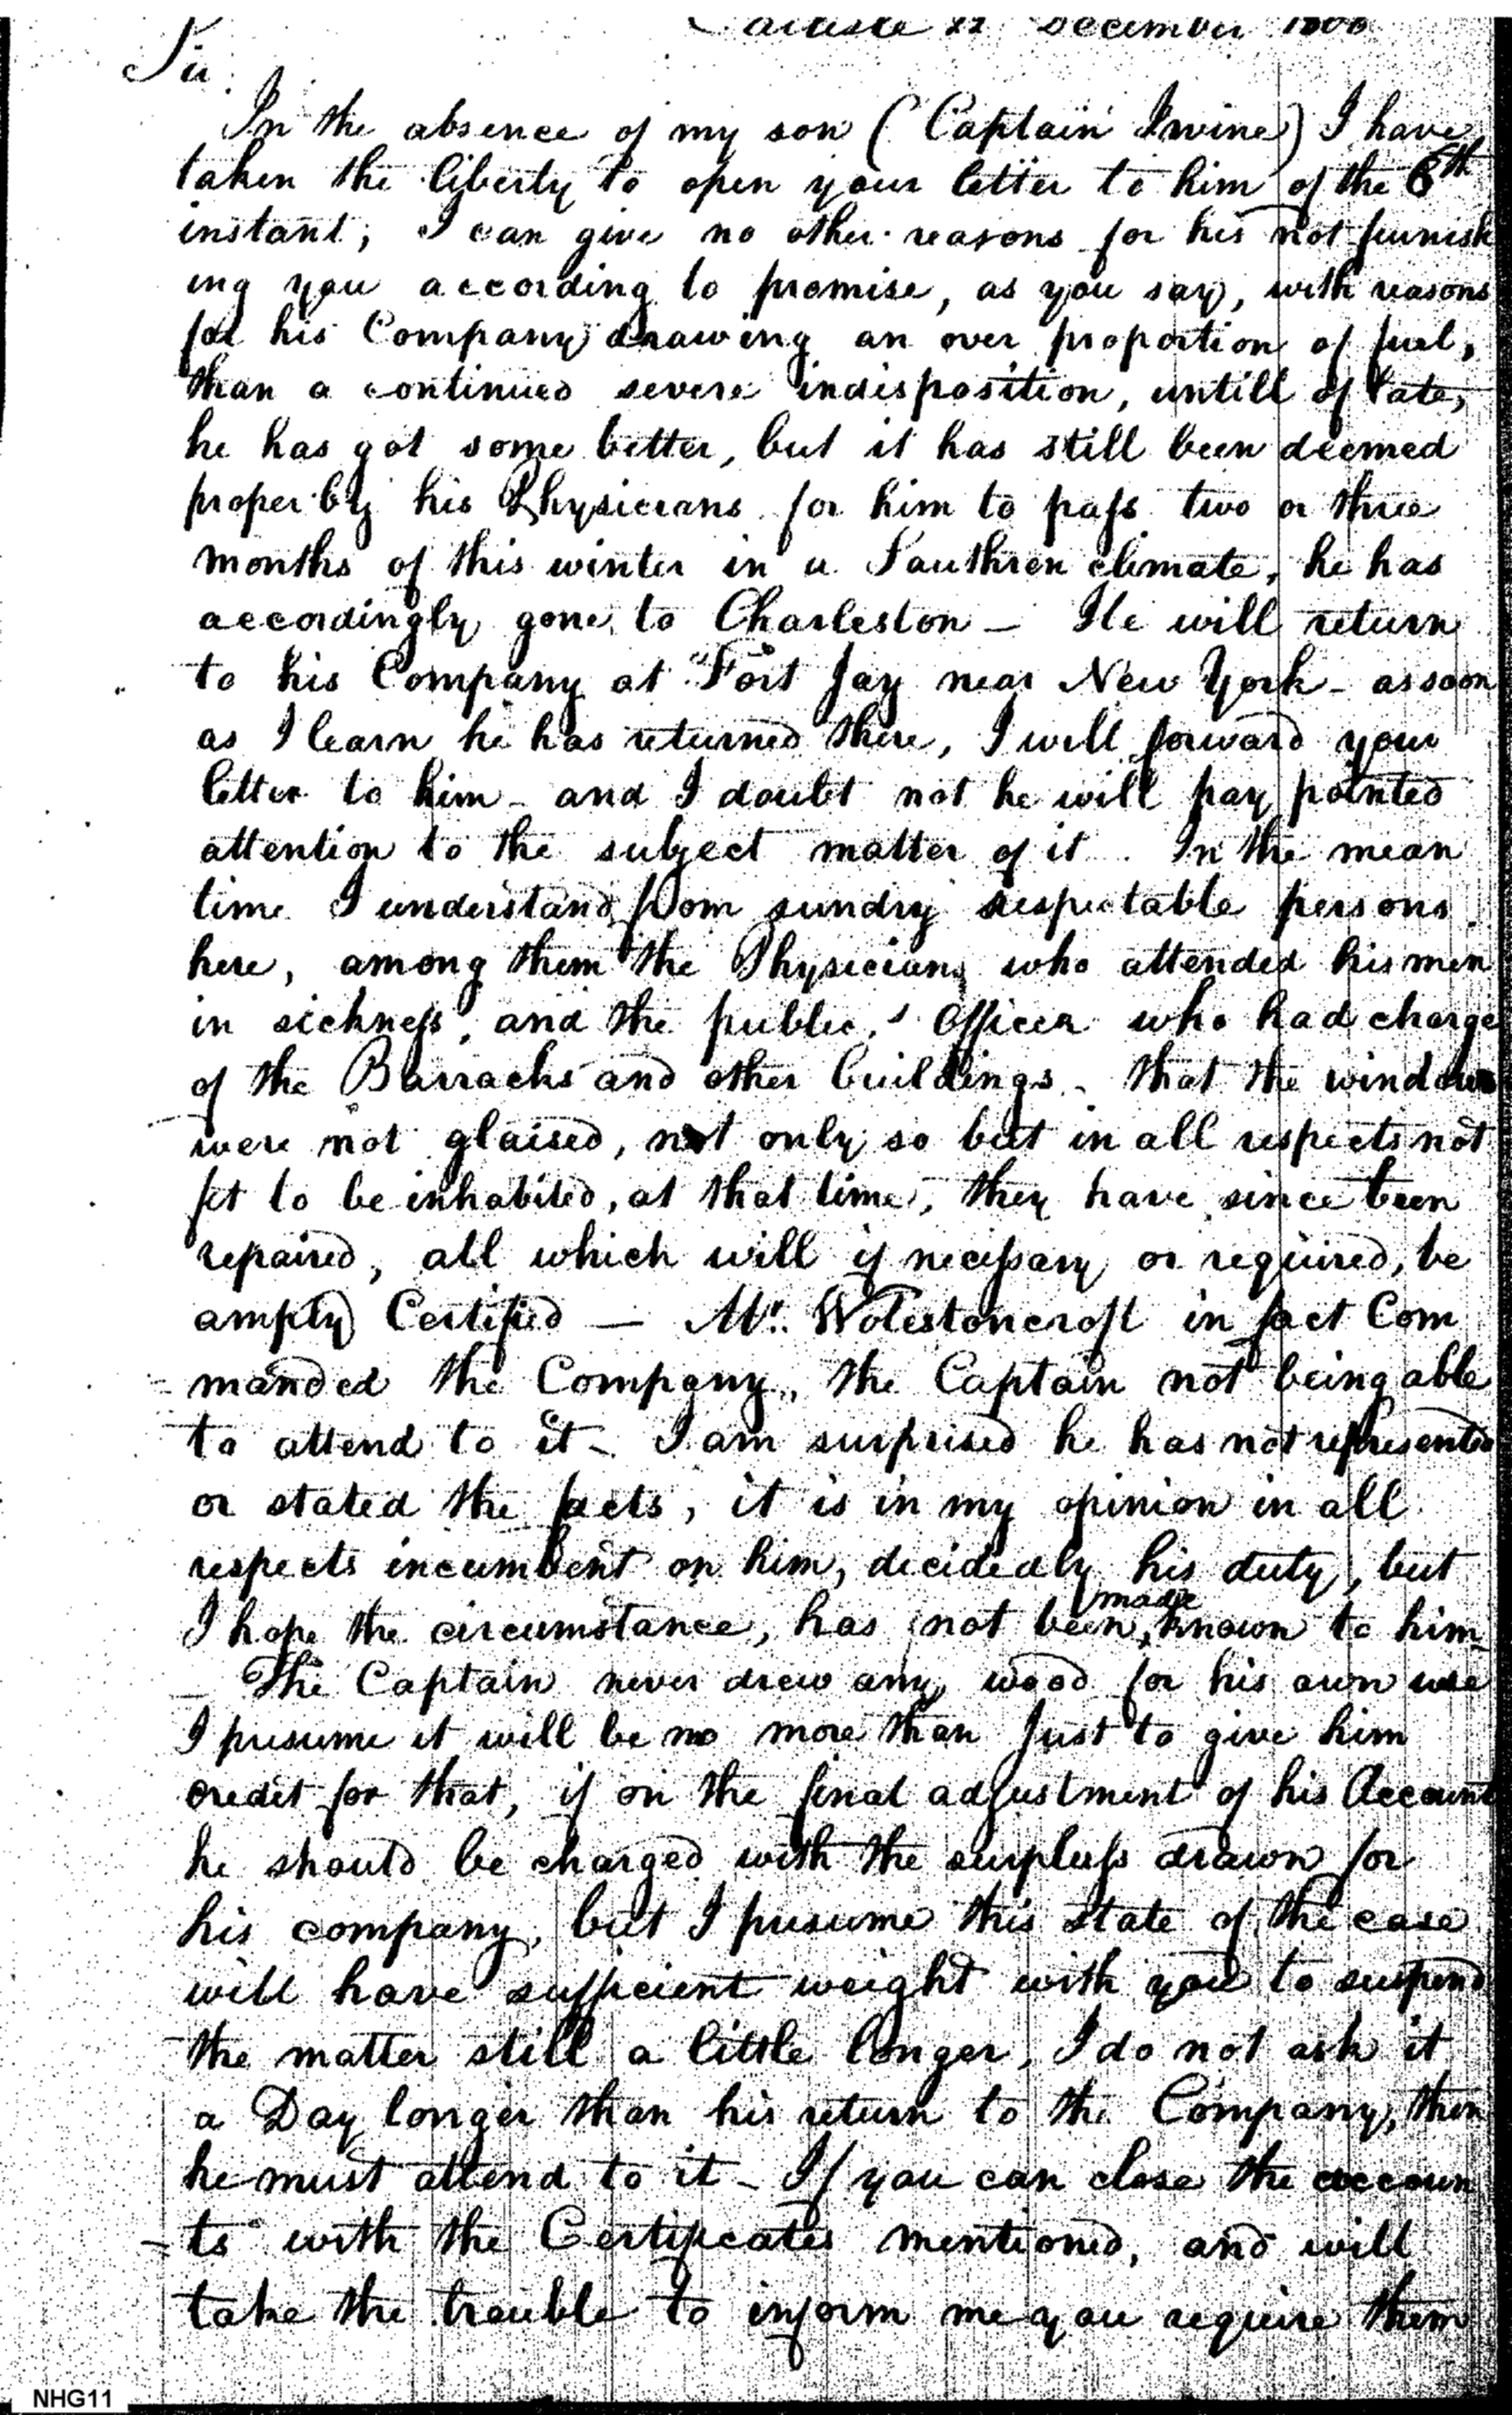 Carlisle 22 December 1800
Sir.
In the absence of my son (Captain Irvine) I have
taken the liberty to open your letter to him of the 6th
instant, I can give no other reasons for his not furnish
ing you according to promise, as you say, with reasons
for his Company drawing an over proportion of fuel,
than a continued severe indisposition, untill of late,
he has got some better, but it has still been deemed
proper by his Physicians for him to pass two or three
months of this winter in a Southren climate, he has
accordingly gone to Charleston – He will return
to his Company at Fort Jay near New York – as soon
as I learn he has returned there, I will forward your
letter to him – and I doubt not he will pay pointed
attention to the subject matter of it. In the mean
time I understand from sundry respectable persons
here, among them the Physicians who attended his men
in sickness, and the public Officer who had charge
of the Barracks and other buildings – that the windows
were not glaised, not only so but in all respects not
fit to be inhabited, at that time, they have since been
repaired, all which will if necessary or required, be
amply Certified — Mr. Wolestoncroft in fact Com
manded the Company, the Captain not being able
to attend to it – I am surprised he has not represented
or stated the facts, it is in my opinion in all
respects incumbent on him, decidedly his duty, but
I hope the circumstance, has not been made known to him –
– The Captain never drew any wood for his own use
I presume it will be no more than just to give him
credit for that, if on the final adjustment of his Account
he should be charged with the surpluss drawn for
his company, but I presume this state of the case
will have sufficient weight with you to suspend
the matter still a little longer, I do not ask it
a Day longer than his return to the Company, then
he must attend to it – If you can close the accoun
ts with the Certificates mentioned, and will
take the trouble to inform me you require them
NHG11